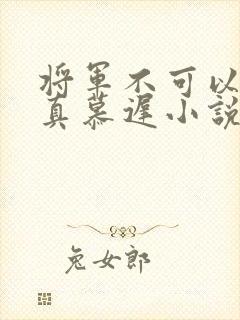 将軍不可以
真慕遲小說
兔女郎